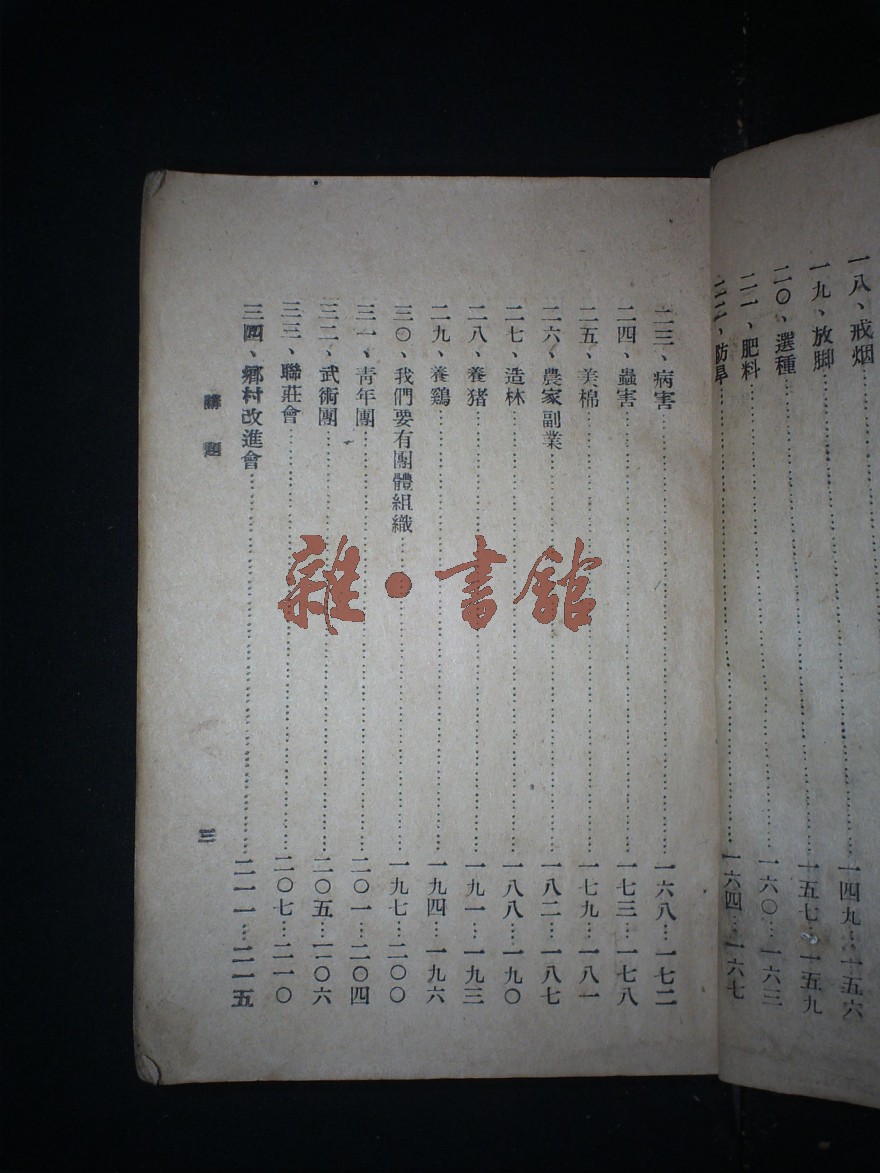 一八、戒烟……一四九…一五六
一九、放脚……一五七…一五九
二〇、選種……一六〇…一六三
二一、肥料
二二、防旱……一六四…一六七
二三、病害……一六八…一七二
二四、蟲害……一七三…一七八
二五、美棉……一七九…一八一
二六、農家副業……一八二…一八七
二七、造林……一八八…一九〇
二八、養猪……一九一…一九三
二九、養鷄……一九四…一九六
三〇、我們要有團體組織……一九七…二〇〇
三一、青年團……二〇一…二〇四
三二、武術團……二〇五…二〇六
三三、聯莊會……二〇七…二一〇
三四、鄉村改進會……二一一…二一五
講題
三
雜·書舘